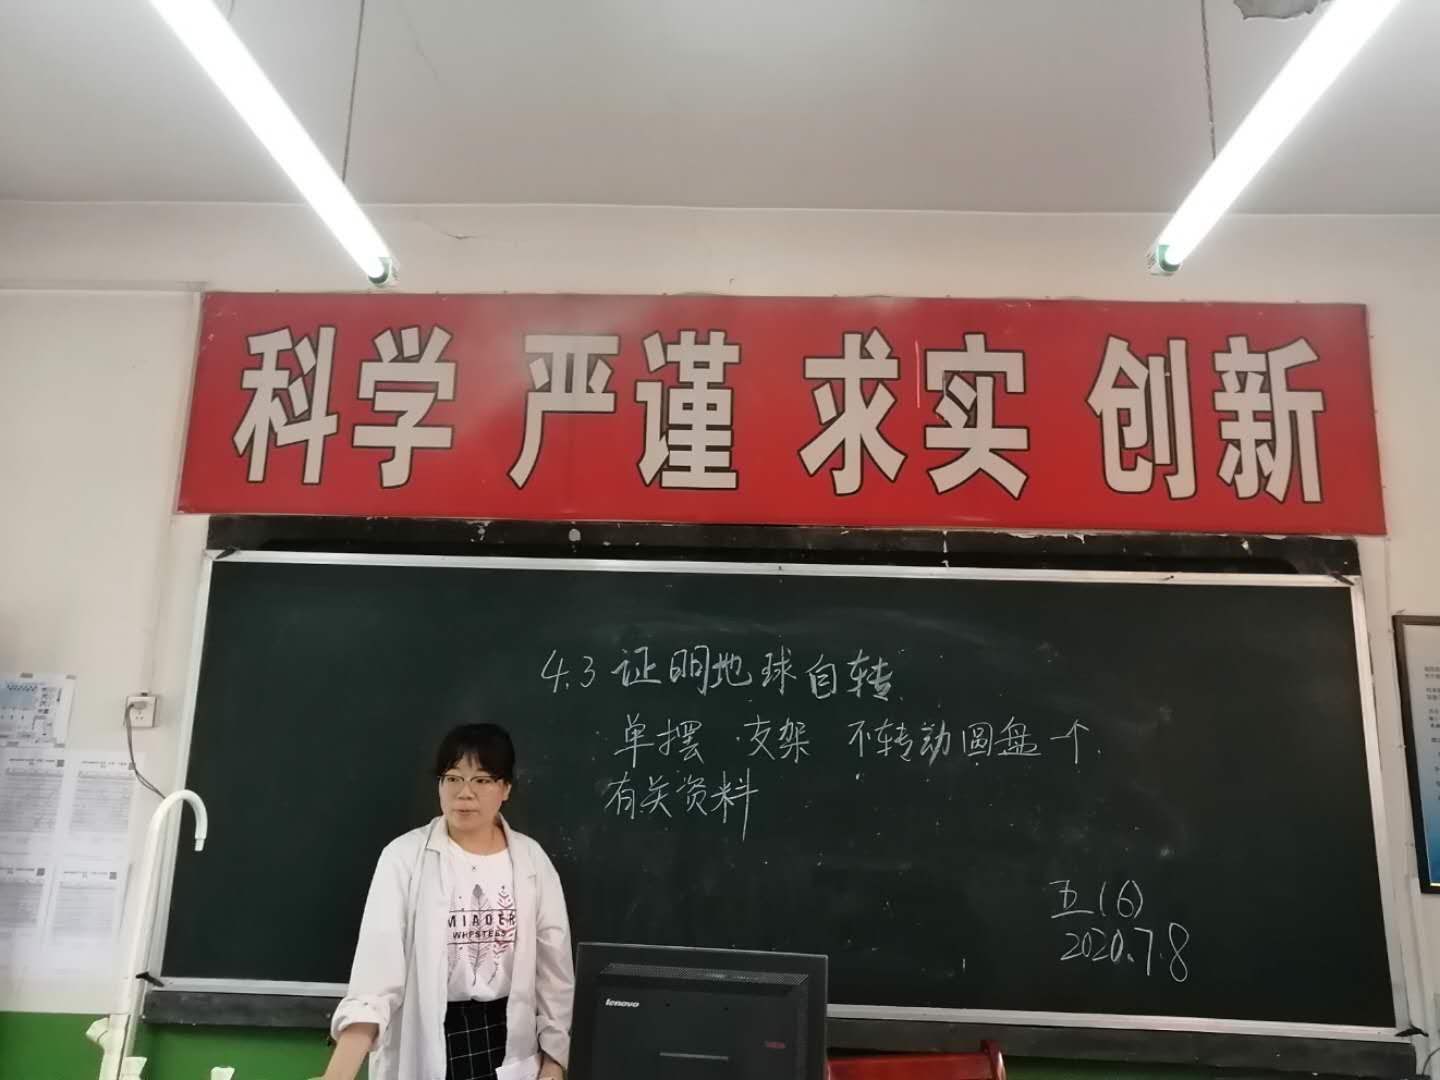 科学 严谨 求实 创新
4.3 证明地球自转
单摆 支架 不转动圆盘一个
有关资料
五(6)
2020.7.8
MIAOER
WHPSTEES
lenovo